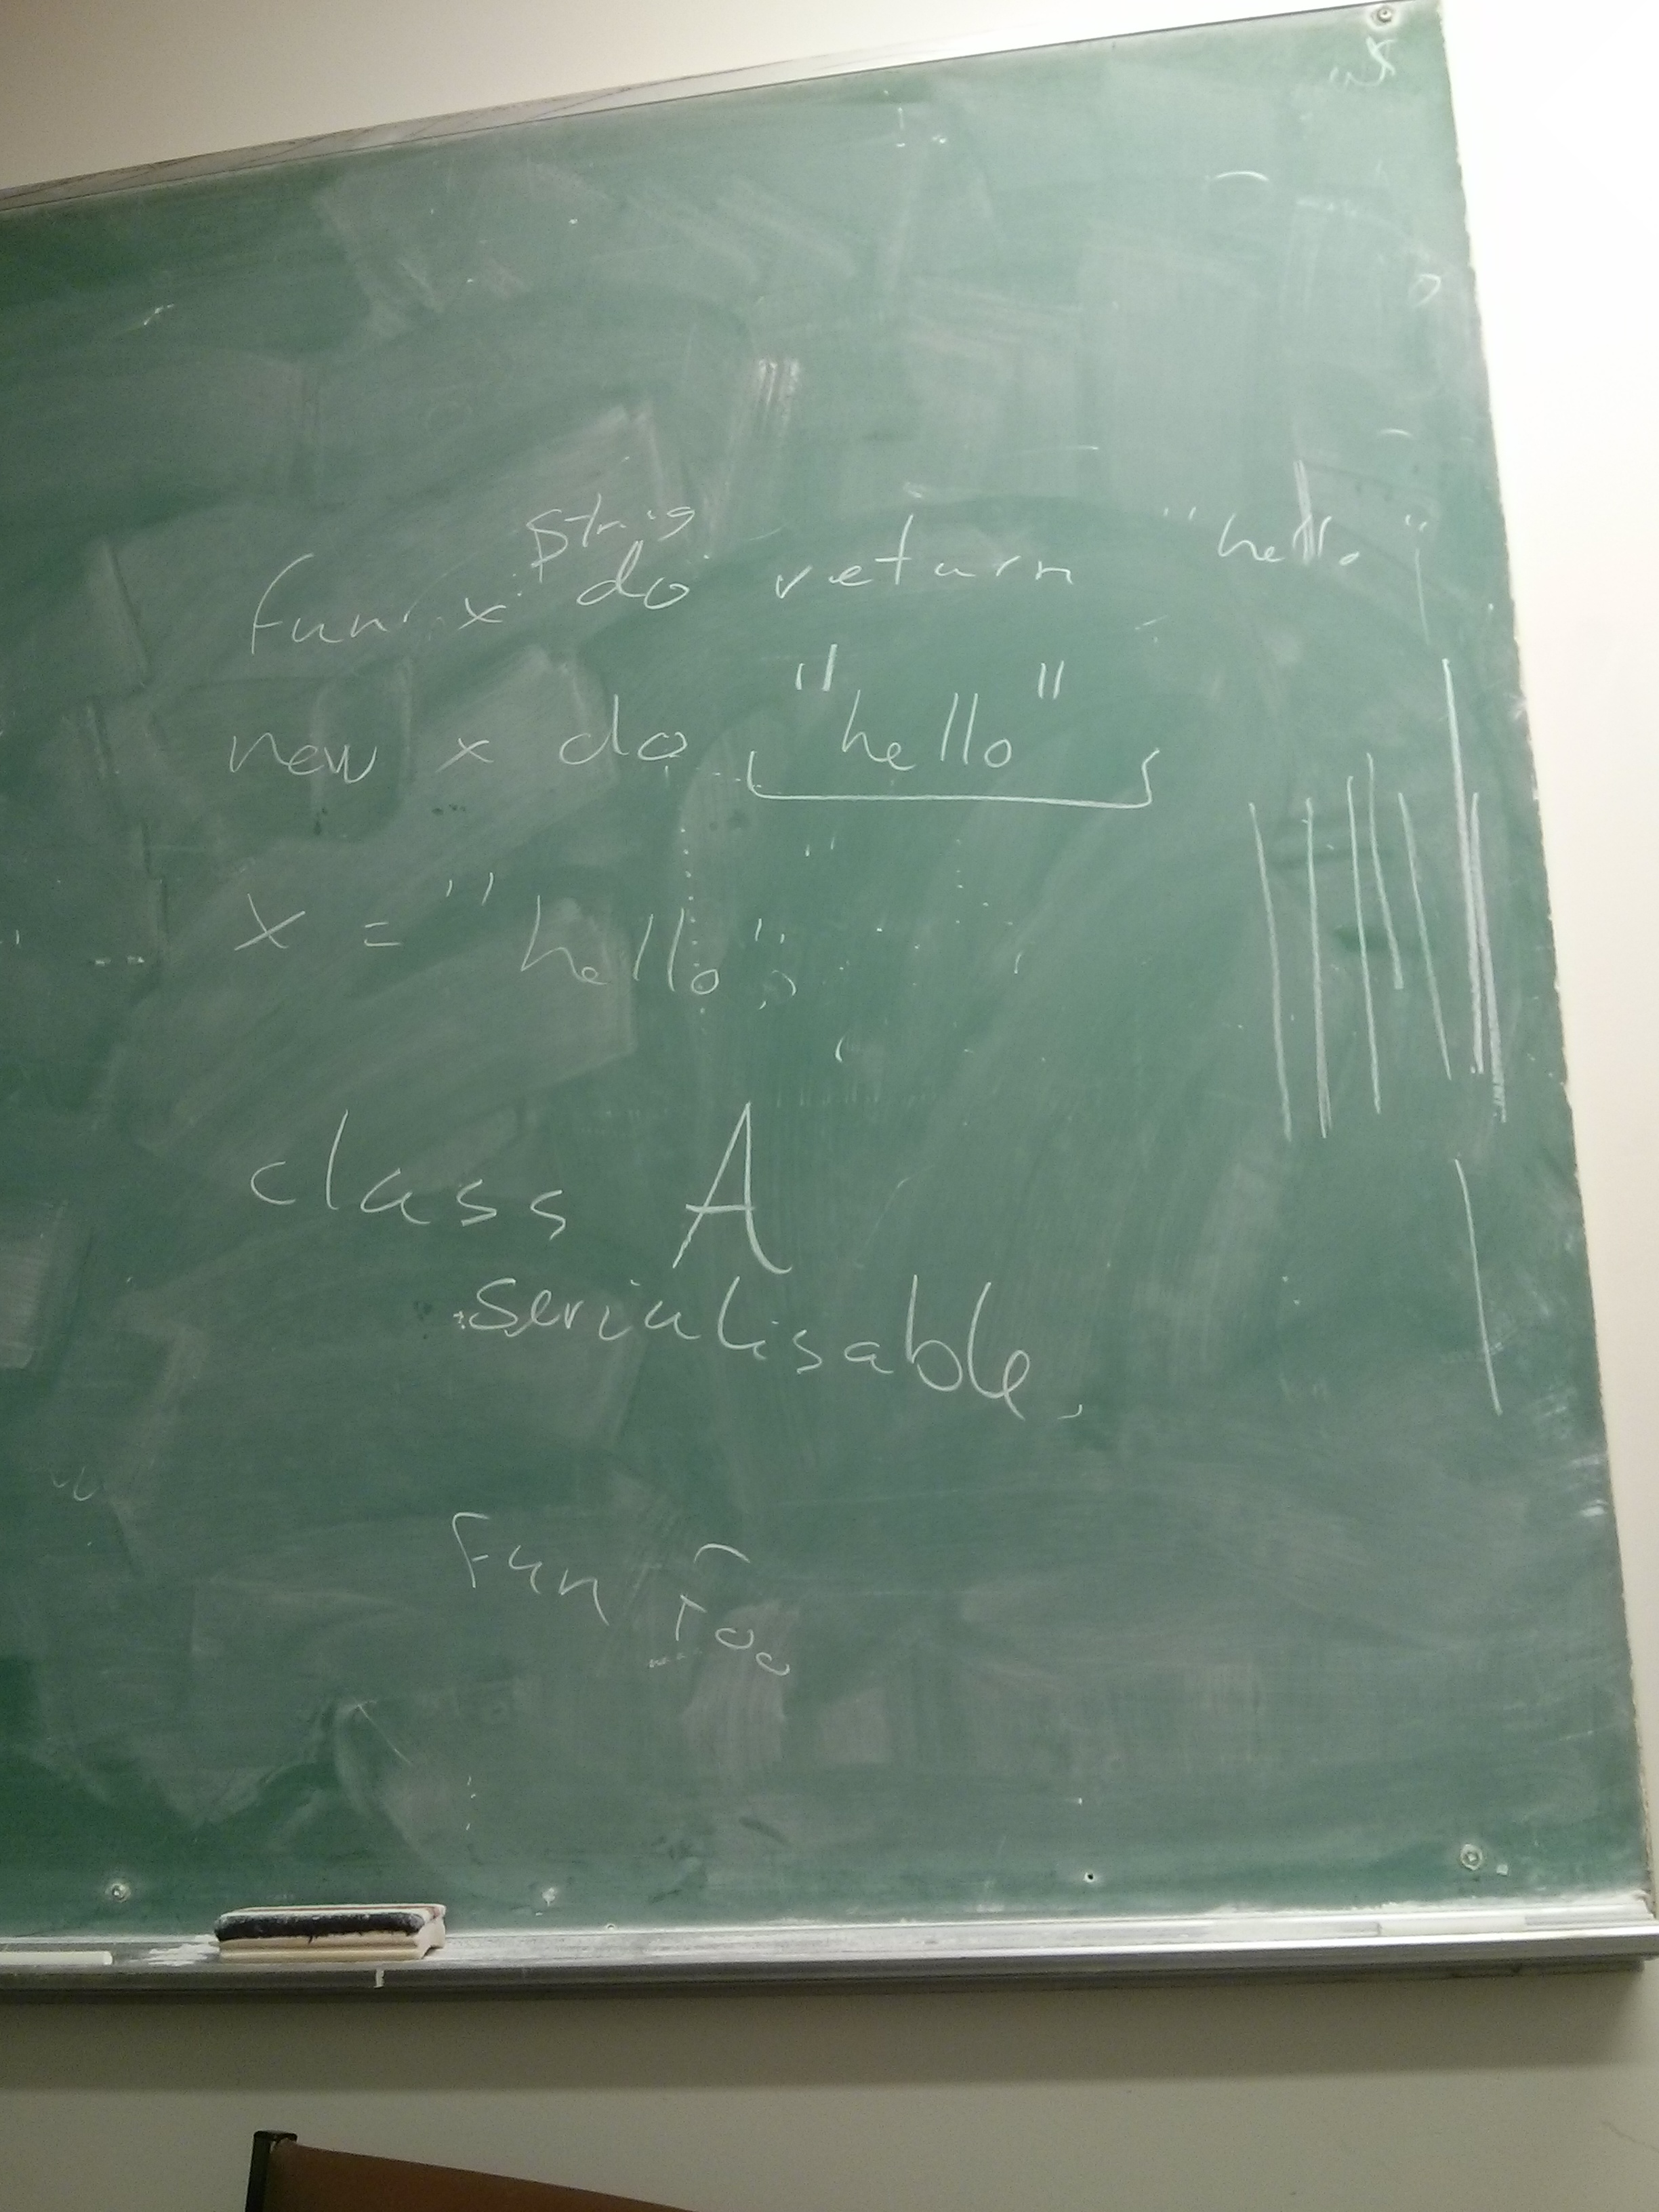 fun x: String do return "hello"
new x do "hello"
x = "hello";
class A
serialisable
fun foo